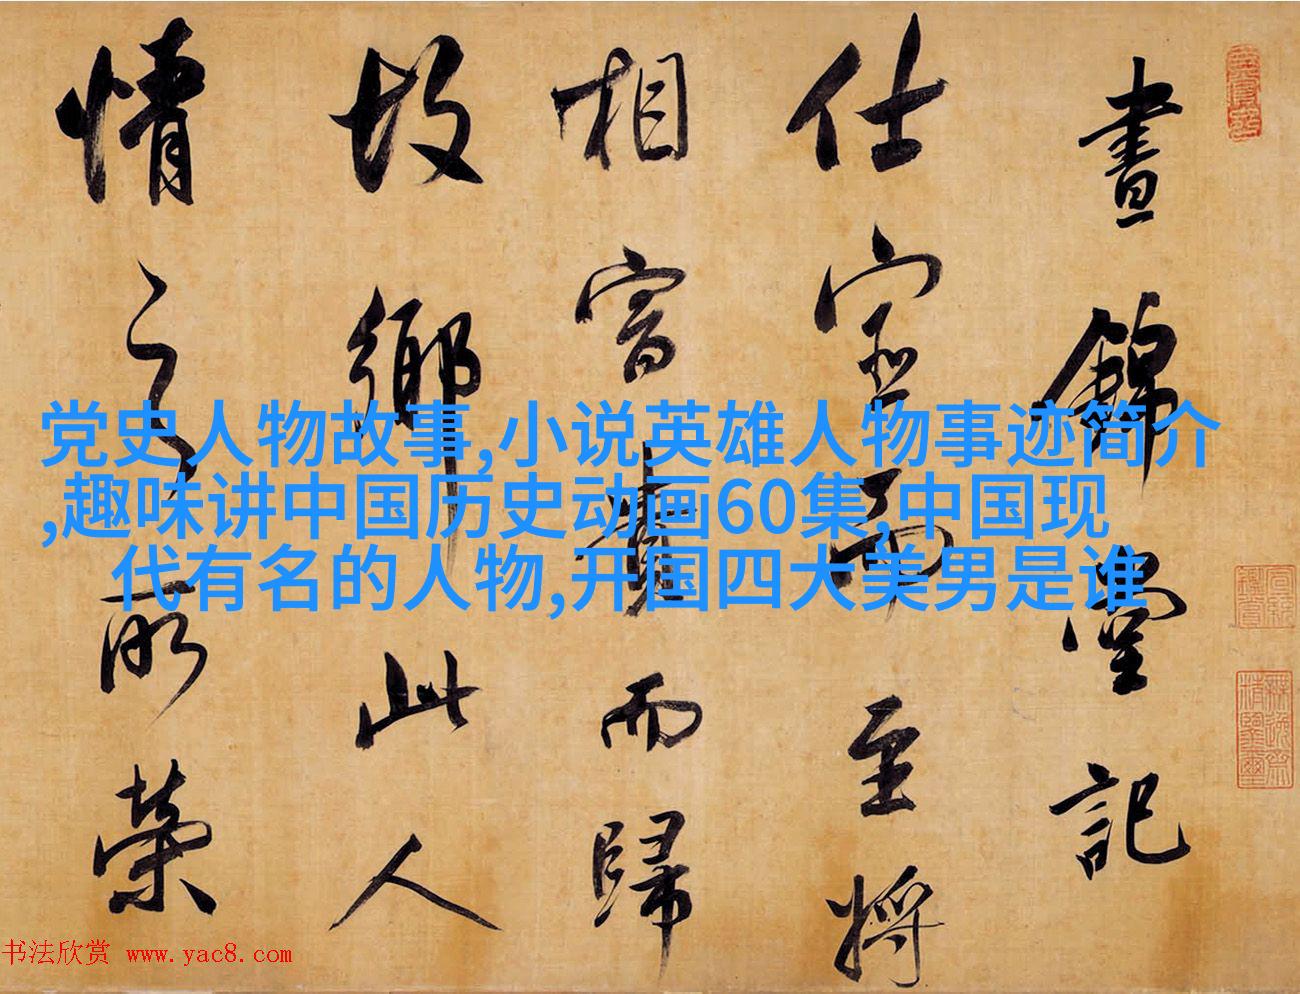 晝錦堂記
仕宦而至將
相富貴而歸
故鄉此人
情之所榮
党史人物故事,小说英雄人物事迹简介
,趣味讲中国历史动画60集,中国现
代有名的人物,开国四大美男是谁
书法欣赏 www.yac8.com